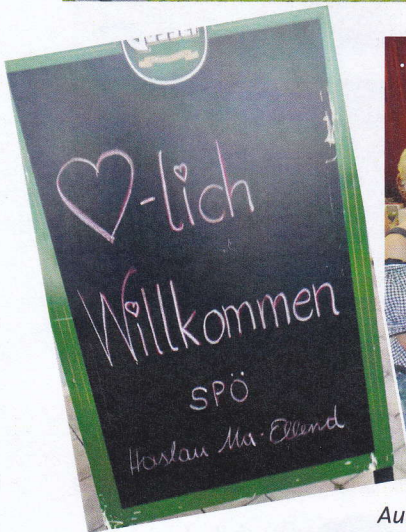 ♡-lich
Willkommen
SPÖ
Haslau Ma. Ellend
Au